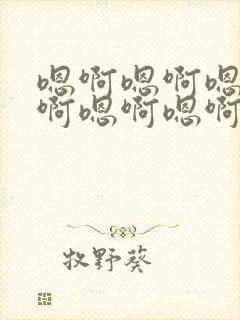 嗯啊嗯啊嗯
啊嗯啊嗯啊
牧野葵